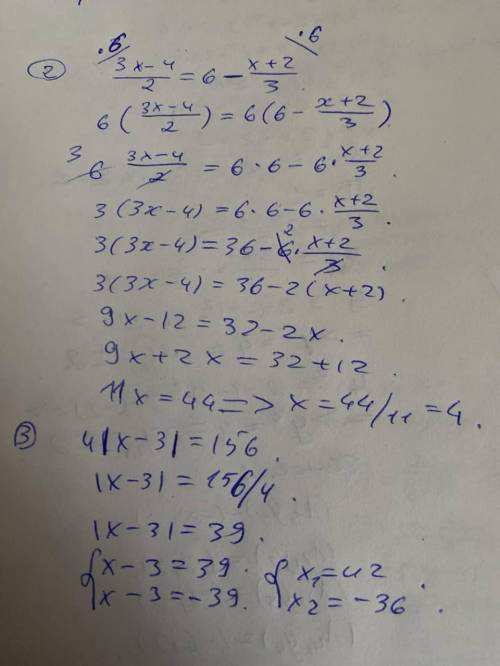 ·6 ·6
② (3x-4)/2 = 6 - (x+2)/3
6((3x-4)/2) = 6(6 - (x+2)/3).
3 6 (3x-4)/2 = 6·6 - 6·(x+2)/3.
3(3x-4) = 6·6 - 6·(x+2)/3.
3(3x-4) = 36 - 6 2·(x+2)/3.
3(3x-4) = 36 - 2(x+2).
9x - 12 = 32 - 2x.
9x + 2x = 32 + 12.
11x = 44 => x = 44/11 = 4.
③ 4|x-3| = 156.
|x-3| = 156/4.
|x-3| = 39.
{ x - 3 = 39. { x₁ = 42
x - 3 = -39. x₂ = -36.